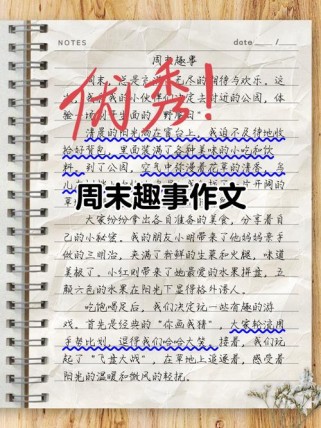 NOTES
date
周末趣事
周末,总是
无尽的期待与欢乐。这
我的小伙伴们
定去附近的公园,体
验一
野
优秀!
清晨的阳光
在窗台上,我迫不及待地收
拾好背包,里面装满了各种美味的小吃和饮
料。到了公园,空气中弥漫着花草的清香,鸟
周末趣事作文
大家纷纷拿出各自准备的美食,分享着自
己的小秘密。我的朋友小明带来了他妈妈亲手
做的三明治,夹满了新鲜的生菜和火腿,味道
美极了。小红则带来了她最爱的水果拼盘,五
颜六色的水果在阳光下显得格外诱人。
吃饱喝足后,我们决定玩一些有趣的游
戏。首先是经典的“你画我猜”,大家轮流用
手势比划,逗得我们哈哈大笑。接着,我们玩
起了“飞盘大战”,在草地上追逐着,感受着
阳光的温暖和微风的轻拂。